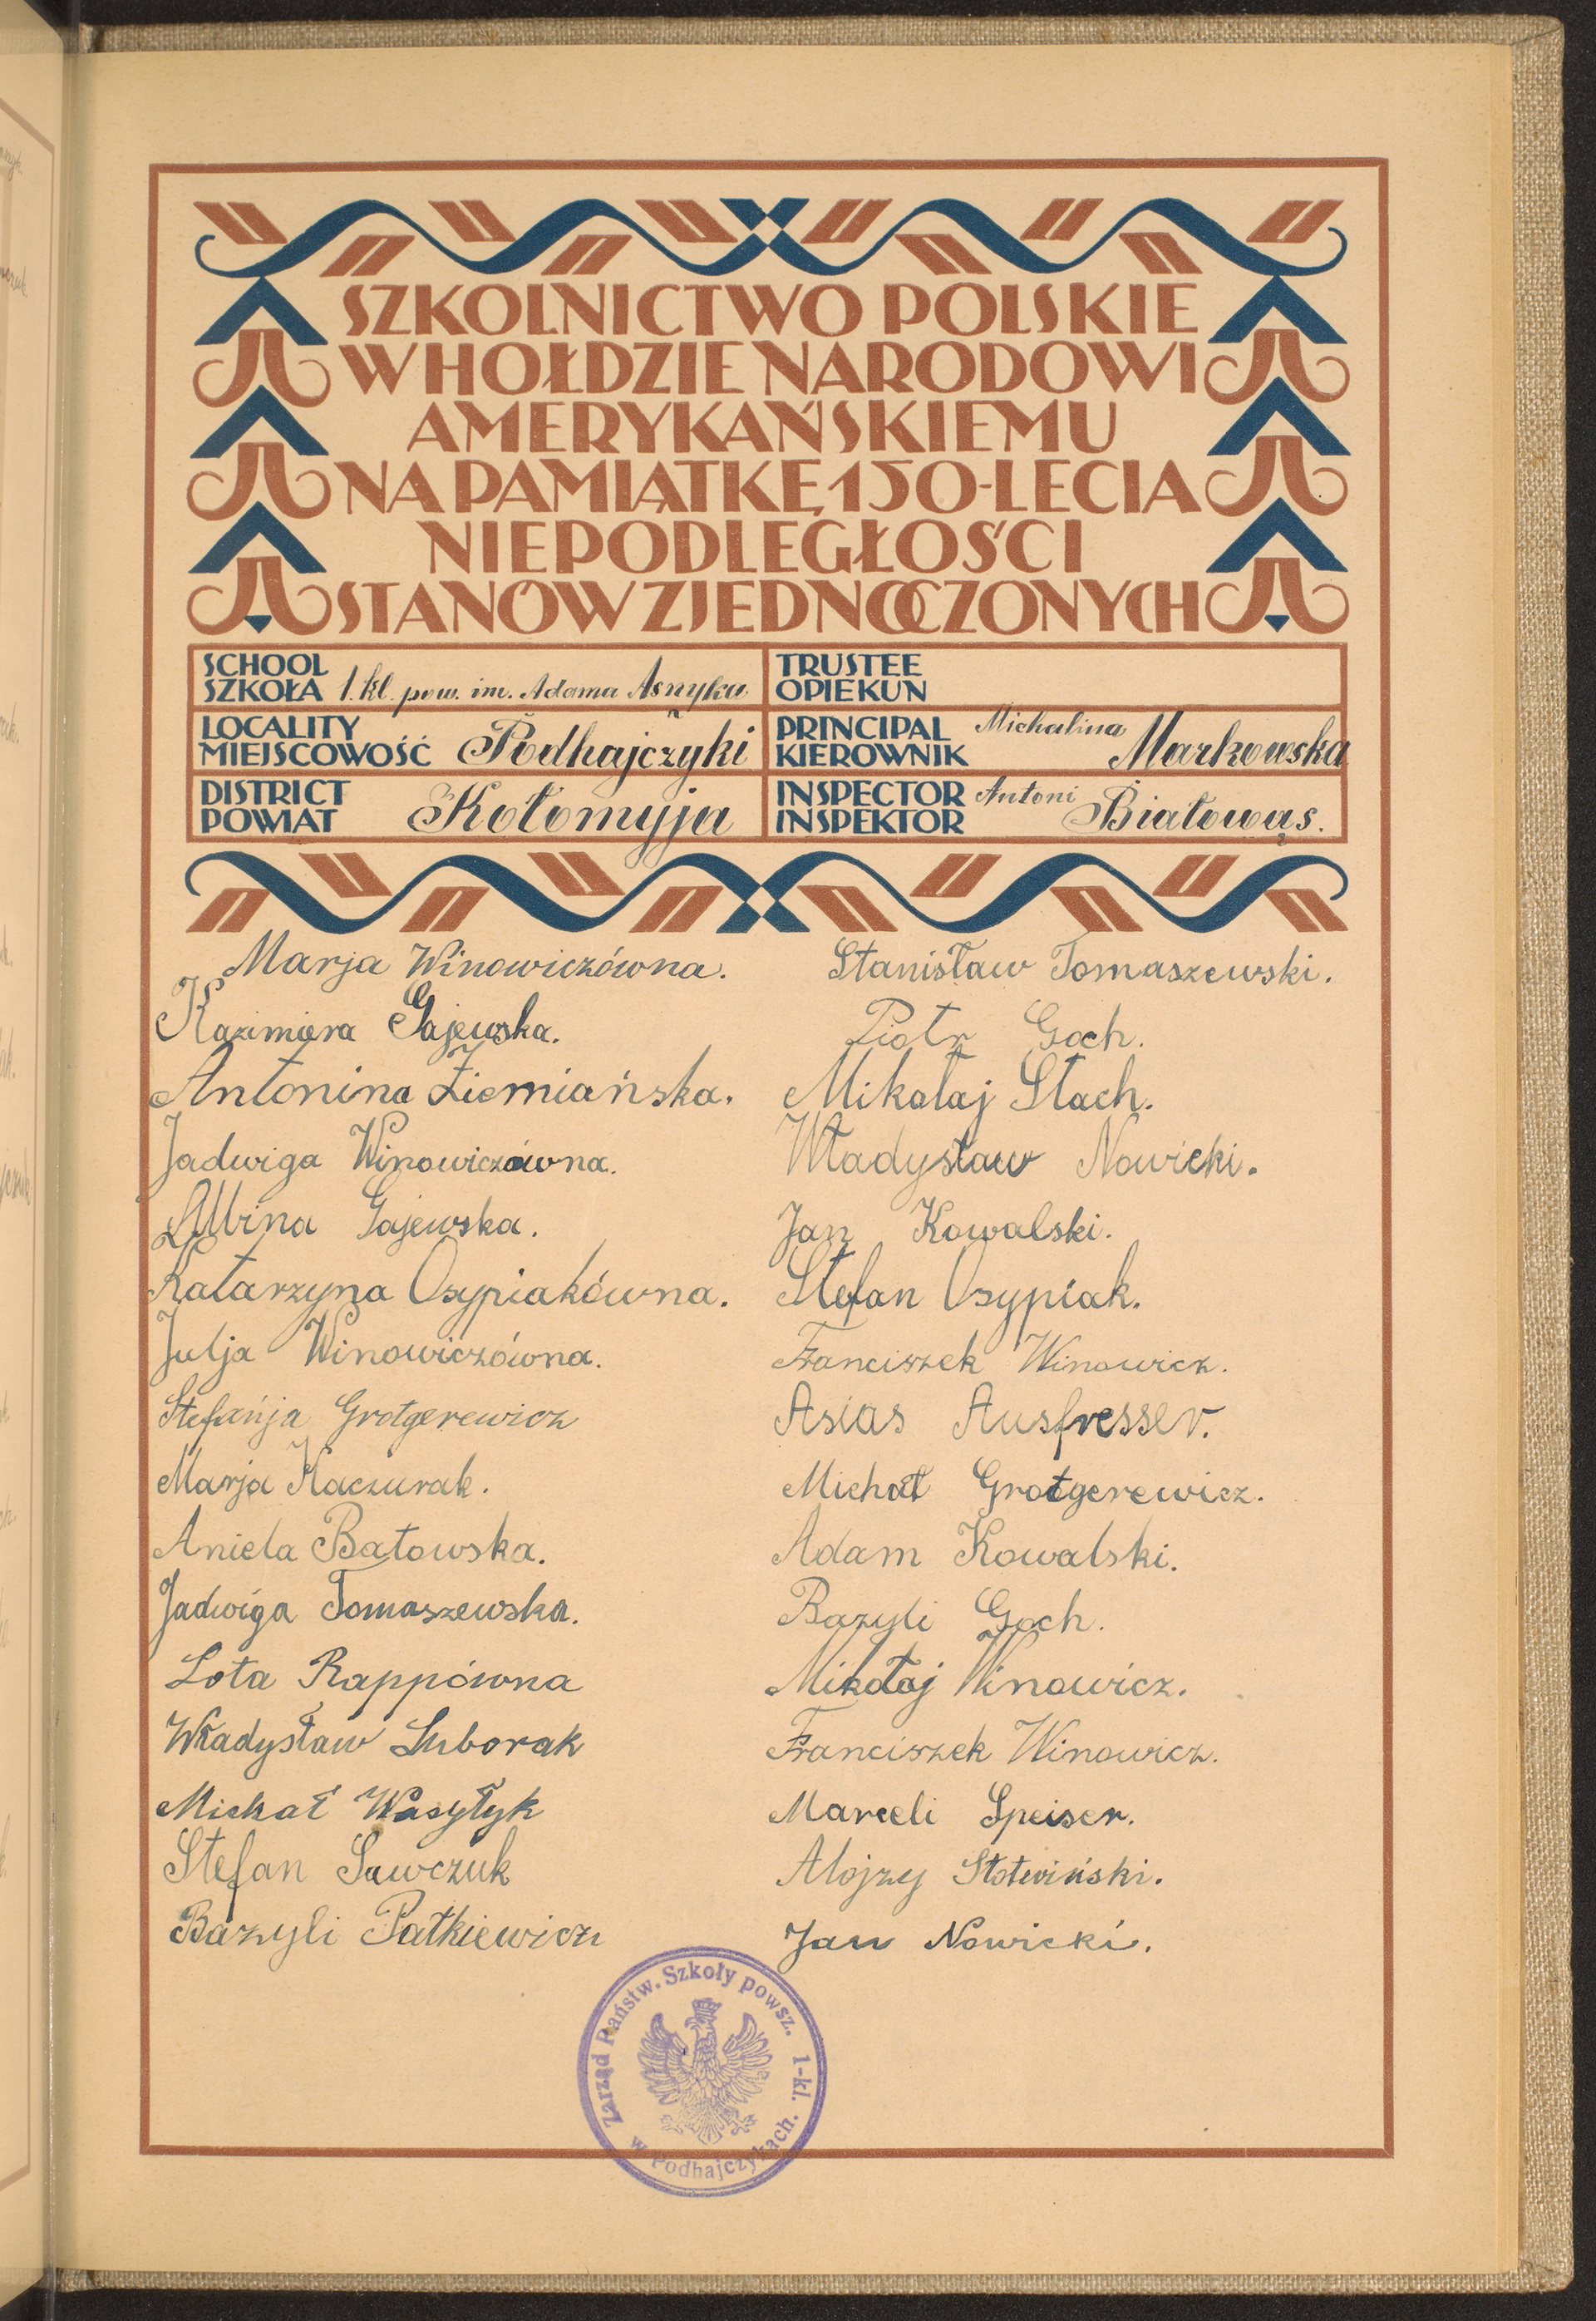 SZKOLNICTWO POLSKIE
W HOŁDZIE NARODOWI
AMERYKAŃSKIEMU
NA PAMIĄTKĘ 150-LECIA
NIEPODLEGŁOŚCI
STANÓW ZJEDNOCZONYCH
SCHOOL
SZKOŁA 1. kl. pow. im. Adama Asnyka
TRUSTEE
OPIEKUN
LOCALITY
MIEJSCOWOŚĆ Podhajczyki
PRINCIPAL
KIEROWNIK Michalina Markowska
DISTRICT
POWIAT Kołomyja
INSPECTOR
INSPEKTOR Antoni Białowąs.
Marja Winowiczówna.
Kazimiera Gajewska.
Antonina Ziemiańska.
Jadwiga Winowiczówna.
Albina Gajewska.
Katarzyna Osypiakówna.
Julja Winowiczówna.
Stefańja Grotgerewicz
Marja Kaczurak.
Aniela Batowska.
Jadwiga Tomaszewska.
Lota Rappówna
Władysław Luborak
Michał Wasyłyk
Stefan Sawczuk
Bazyli Patkiewicz
Stanisław Tomaszewski.
Piotr Goch.
Mikołaj Stach.
Władysław Nowicki.
Jan Kowalski.
Stefan Osypiak.
Franciszek Winowicz.
Asias Ausfresser.
Michał Grotgerewicz.
Adam Kowalski.
Bazyli Goch.
Mikołaj Winowicz.
Franciszek Winowicz.
Marceli Speiser.
Alojzy Słotwiński.
Jan Nowicki.
Zarząd Państw. Szkoły powsz. 1-kl.
w Podhajczykach.